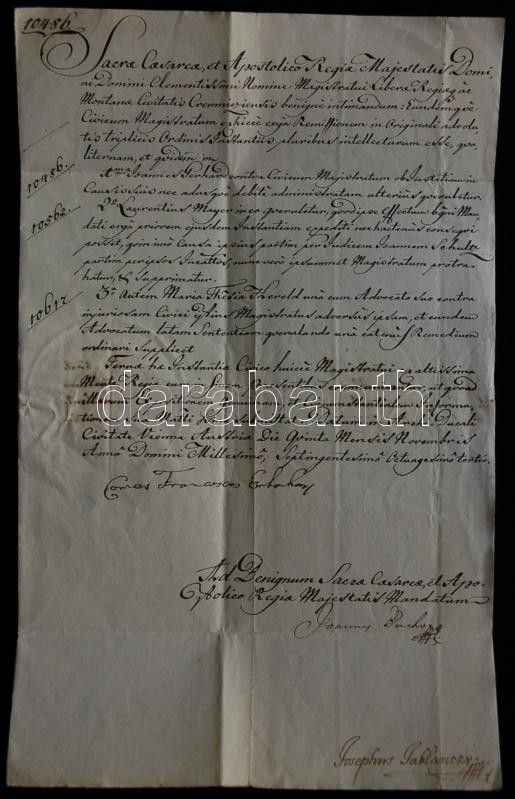 10486
Sacræ Cæsareæ, et Apostolico Regiæ Majestatis Domi-
ni, Domini Clementissimi Nomine Magistratui Liberæ Regiæq. ac
Montanæ Civitatis Cremniciensis benigne intimandum: Eundem qvè
Civicum Magistratum ephicce ergà Remissionem in Originali advolu-
tis triplicis Ordinis Instantiis pluribus intellecturum esse, qva-
liternam, et qvidem
10486.
Joannes Gerhard contra Civicum Magistratum ob Justitiam in
Causis suis nec adusqvè debitè administratam ulterius qveruletur.
10562.
2do Laurentius Mayer in eo qveruletur, qvod ipse effectum Man-
dati ergà priorem ejusdem Instantiam expediti nec hactenus conseqvi
possit, qvin imò Causa ipsius partim per Judicem Joannem Schultz
partim per ipsos Incattos, nunc verò ipsummet Magistratum protra-
hatur, & Supprimatur.
10617
3o Autem Maria Thesia Herold unà cum Advocato suo contra
injuriosam Civici ipsius Magistratus adversus ipsam, et eundem
Advocatum latam Sententiam qverulando unà eatenus Remedium
ordinari Supplicet
Ternæ hæ Instantiæ Civico huicce Magistratui ex altissima
Mente Regia eum
Civitate Viennæ Austriæ Die Qvinta Mensis Novembris
Annô Domini Millesimô, Septingentesimô Octuagesimô tertio.
Comes Franciscus
darabanth
Ad Benignum Sacræ Cæsareæ, et Apo-
stolico Regiæ Majestatis Mandatum
Joannes
Josephus Jablanczy